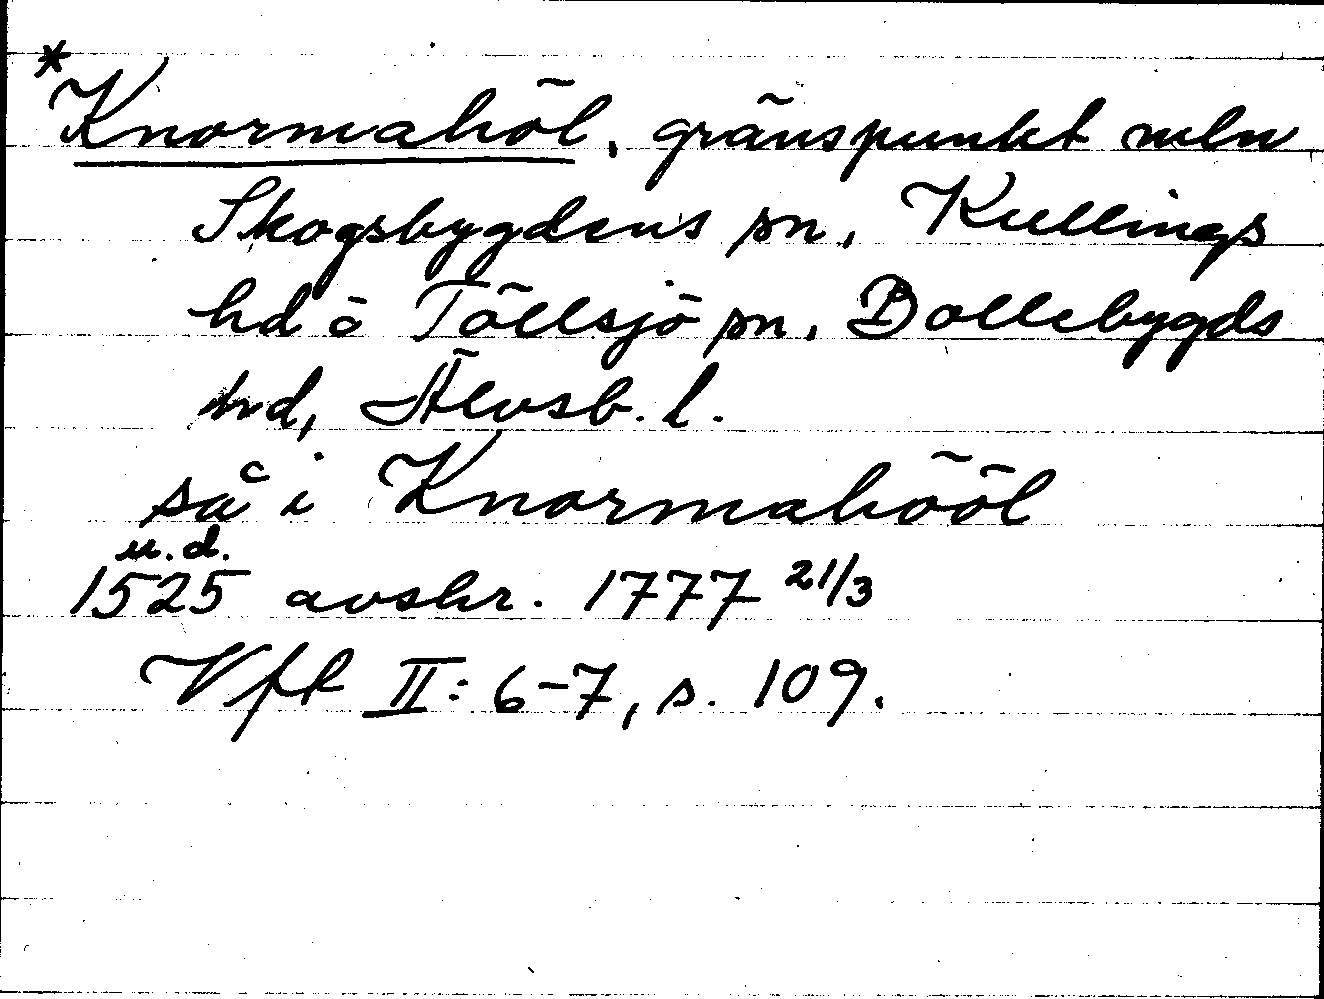 *Knormahöl, gränspunkt mln
Skogsbygdens sn, Kullings
hd o Töllsjö sn, Bollebygds
hd, Älvsb. l.
så i Knormahööl
u.d.
1525 avskr. 1777 21/3
Vfl II: 6-7, s. 109.